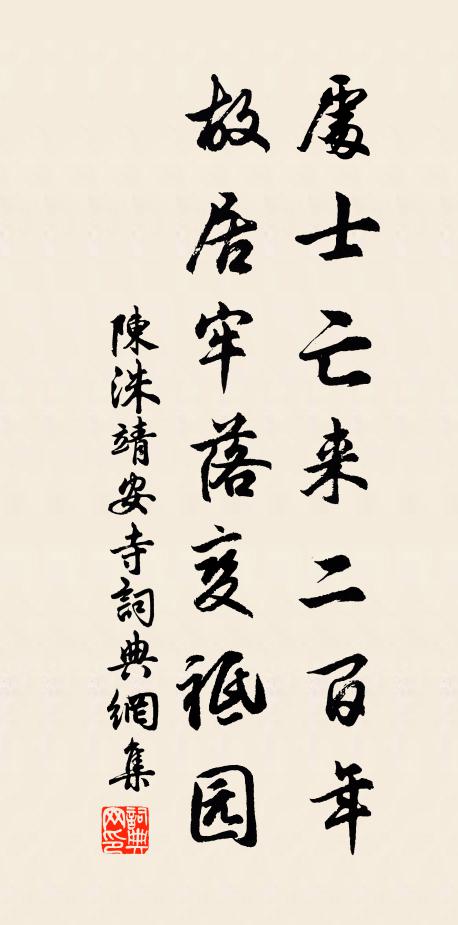 處士亡来二百年
故居牢落变祇园
陳洙靖安寺詞典網集
詞典網印